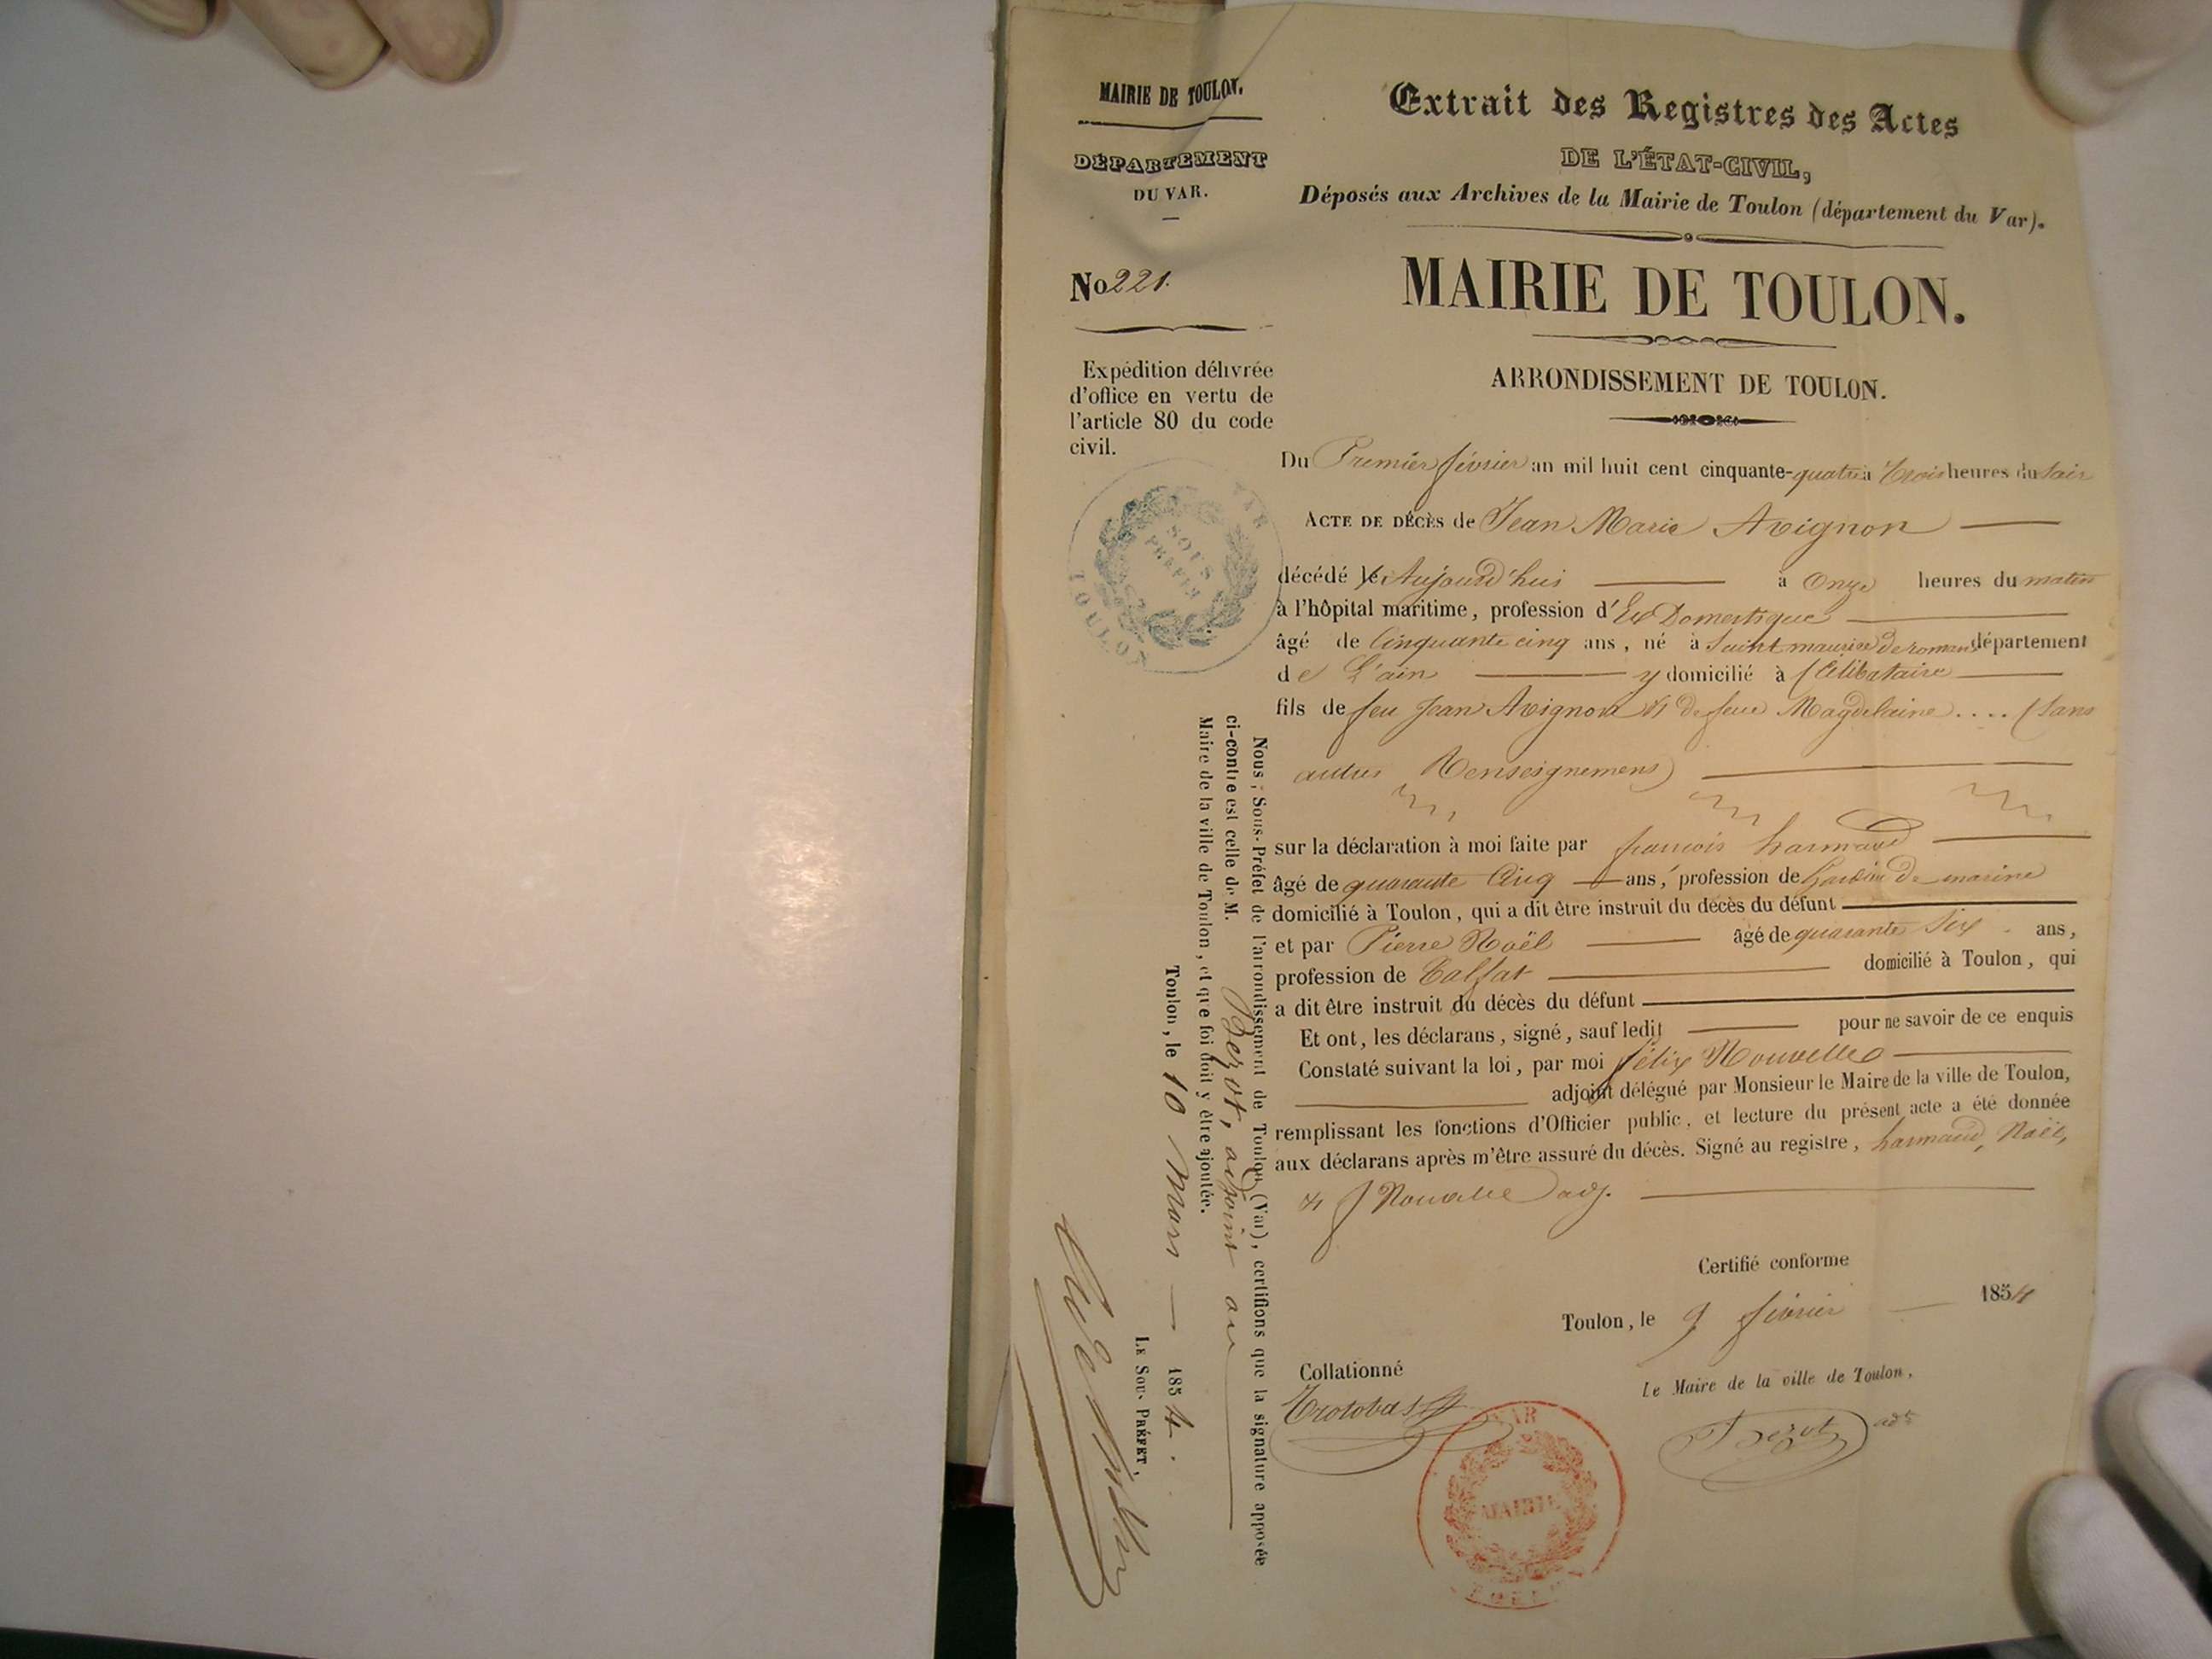 MAIRIE DE TOULON.
DÉPARTEMENT
DU VAR.
No 221.
Expédition délivrée
d'office en vertu de
l'article 80 du code
civil.
VAR
SOUS
PRÉFET
TOULON
Extrait des Registres des Actes
DE L'ÉTAT-CIVIL,
Déposés aux Archives de la Mairie de Toulon (département du Var).
MAIRIE DE TOULON.
ARRONDISSEMENT DE TOULON.
Du Premier février an mil huit cent cinquante-quatre à trois heures du soir
ACTE DE DÉCÈS de Jean Marie Avignon
décédé le Aujourd'hui à Onze heures du matin
à l'hôpital maritime, profession d'Ex Domestique
âgé de Cinquante cinq ans, né à Saint maurice de roman département
de L'ain y domicilié à (Célibataire
fils de feu Jean Avignon et de feue Magdelaine .... (Sans
autres Renseignemens)
sur la déclaration à moi faite par francois harmand
âgé de quarante Cinq ans, profession de Gardien de marine
domicilié à Toulon, qui a dit être instruit du décès du défunt
et par Pierre Noël âgé de quarante six ans,
profession de Calfat domicilié à Toulon, qui
a dit être instruit du décès du défunt
Et ont, les déclarans, signé, sauf ledit pour ne savoir de ce enquis
Constaté suivant la loi, par moi félix Nouvelle
adjoint délégué par Monsieur le Maire de la ville de Toulon,
remplissant les fonctions d'Officier public, et lecture du présent acte a été donnée
aux déclarans après m'être assuré du décès. Signé au registre, harmand, Noël,
et f Nouvelle adj.
Certifié conforme
Toulon, le 9 février 1854
Collationné
Trotobas
Le Maire de la ville de Toulon,
Bezot adt
VAR
MAIRIE
Nous, Sous-Préfet de l'arrondissement de Toulon (Var), certifions que la signature apposée
ci-contre est celle de M. Bezot, adjoint au
Maire de la ville de Toulon, et que foi doit y être ajoutée.
Toulon, le 10 Mars 1854.
LE SOUS PRÉFET,